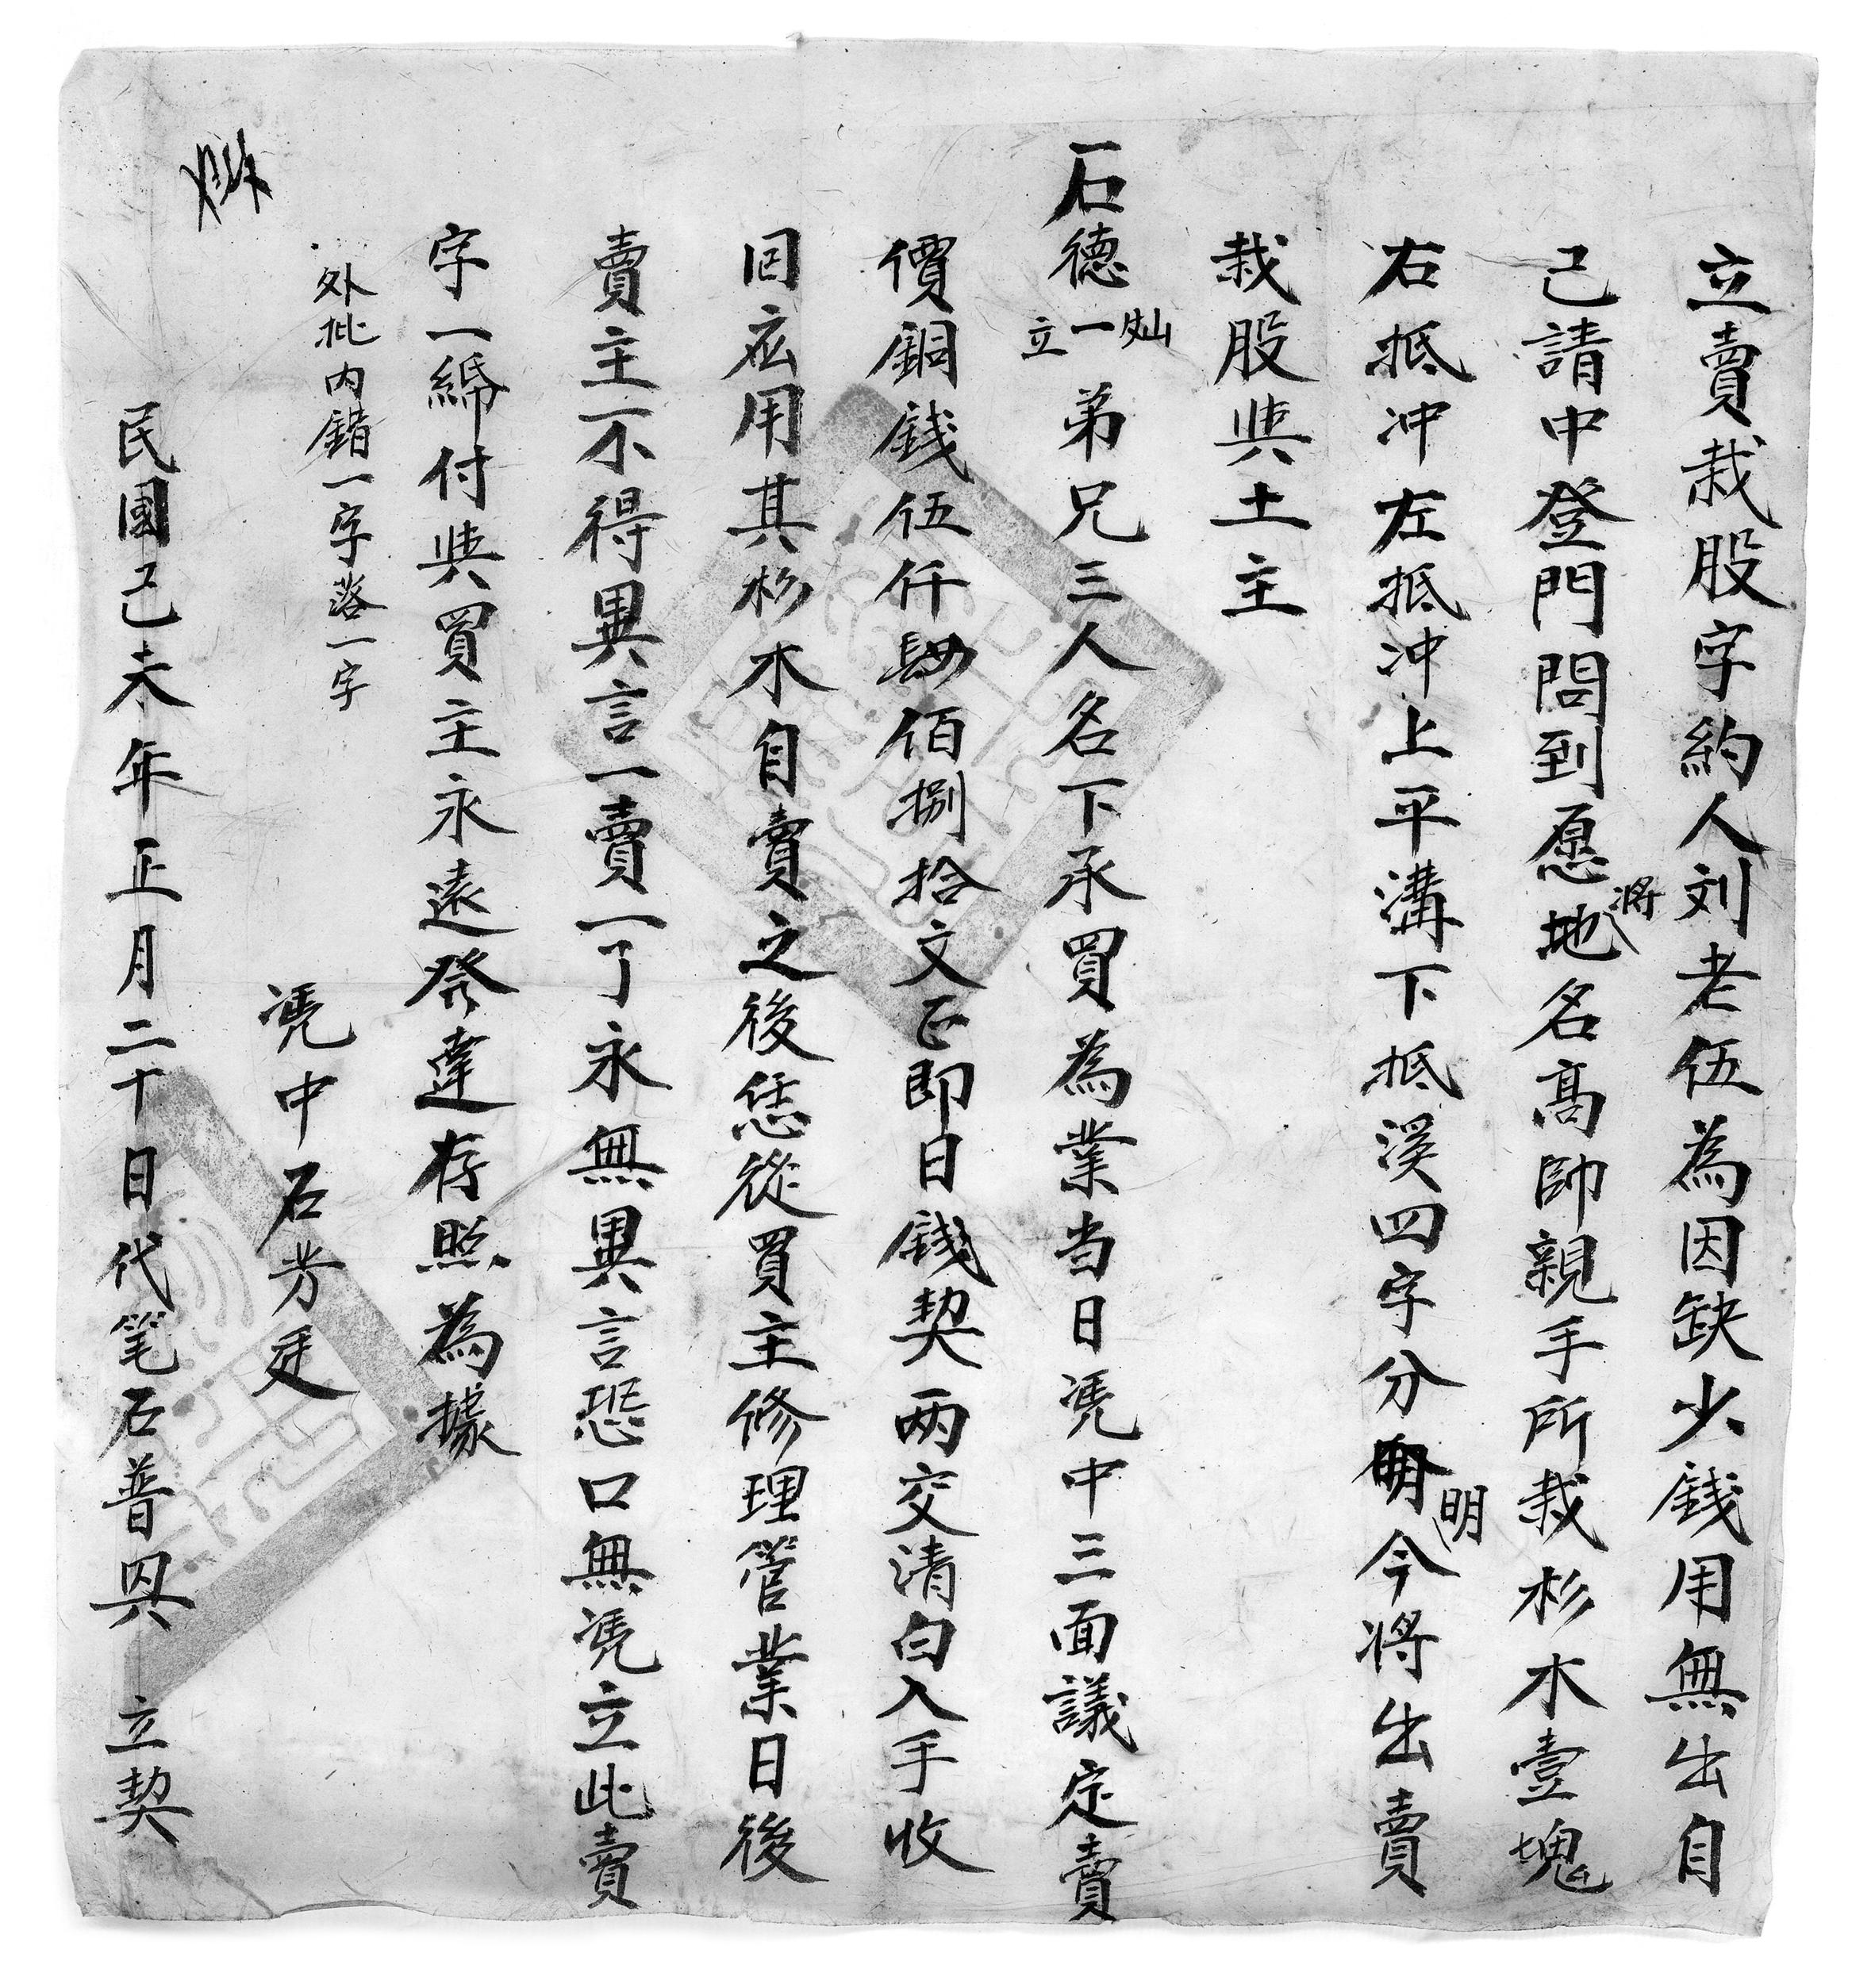 立賣栽股字約人刘老伍為因缺少錢用無出自
己請中登門問到愿將地名高帥親手所栽杉木壹塊
右抵冲左抵冲上平溝下抵溪四字分明今將出賣
栽股與土主
石德灿一立弟兄三人名下承買為業当日凴中三面議定賣
價銅錢伍仟肆佰捌拾文正即日錢契两交清白入手收
回应用其杉木自賣之後恁從買主修理管業日後
賣主不得異言一賣一了永無異言恐口無凴立此賣
字一綿付與買主永遠發達存照為據
外批内錯一字落一字
凴中石芳廷
民國己未年正月二十日代笔石普興立契